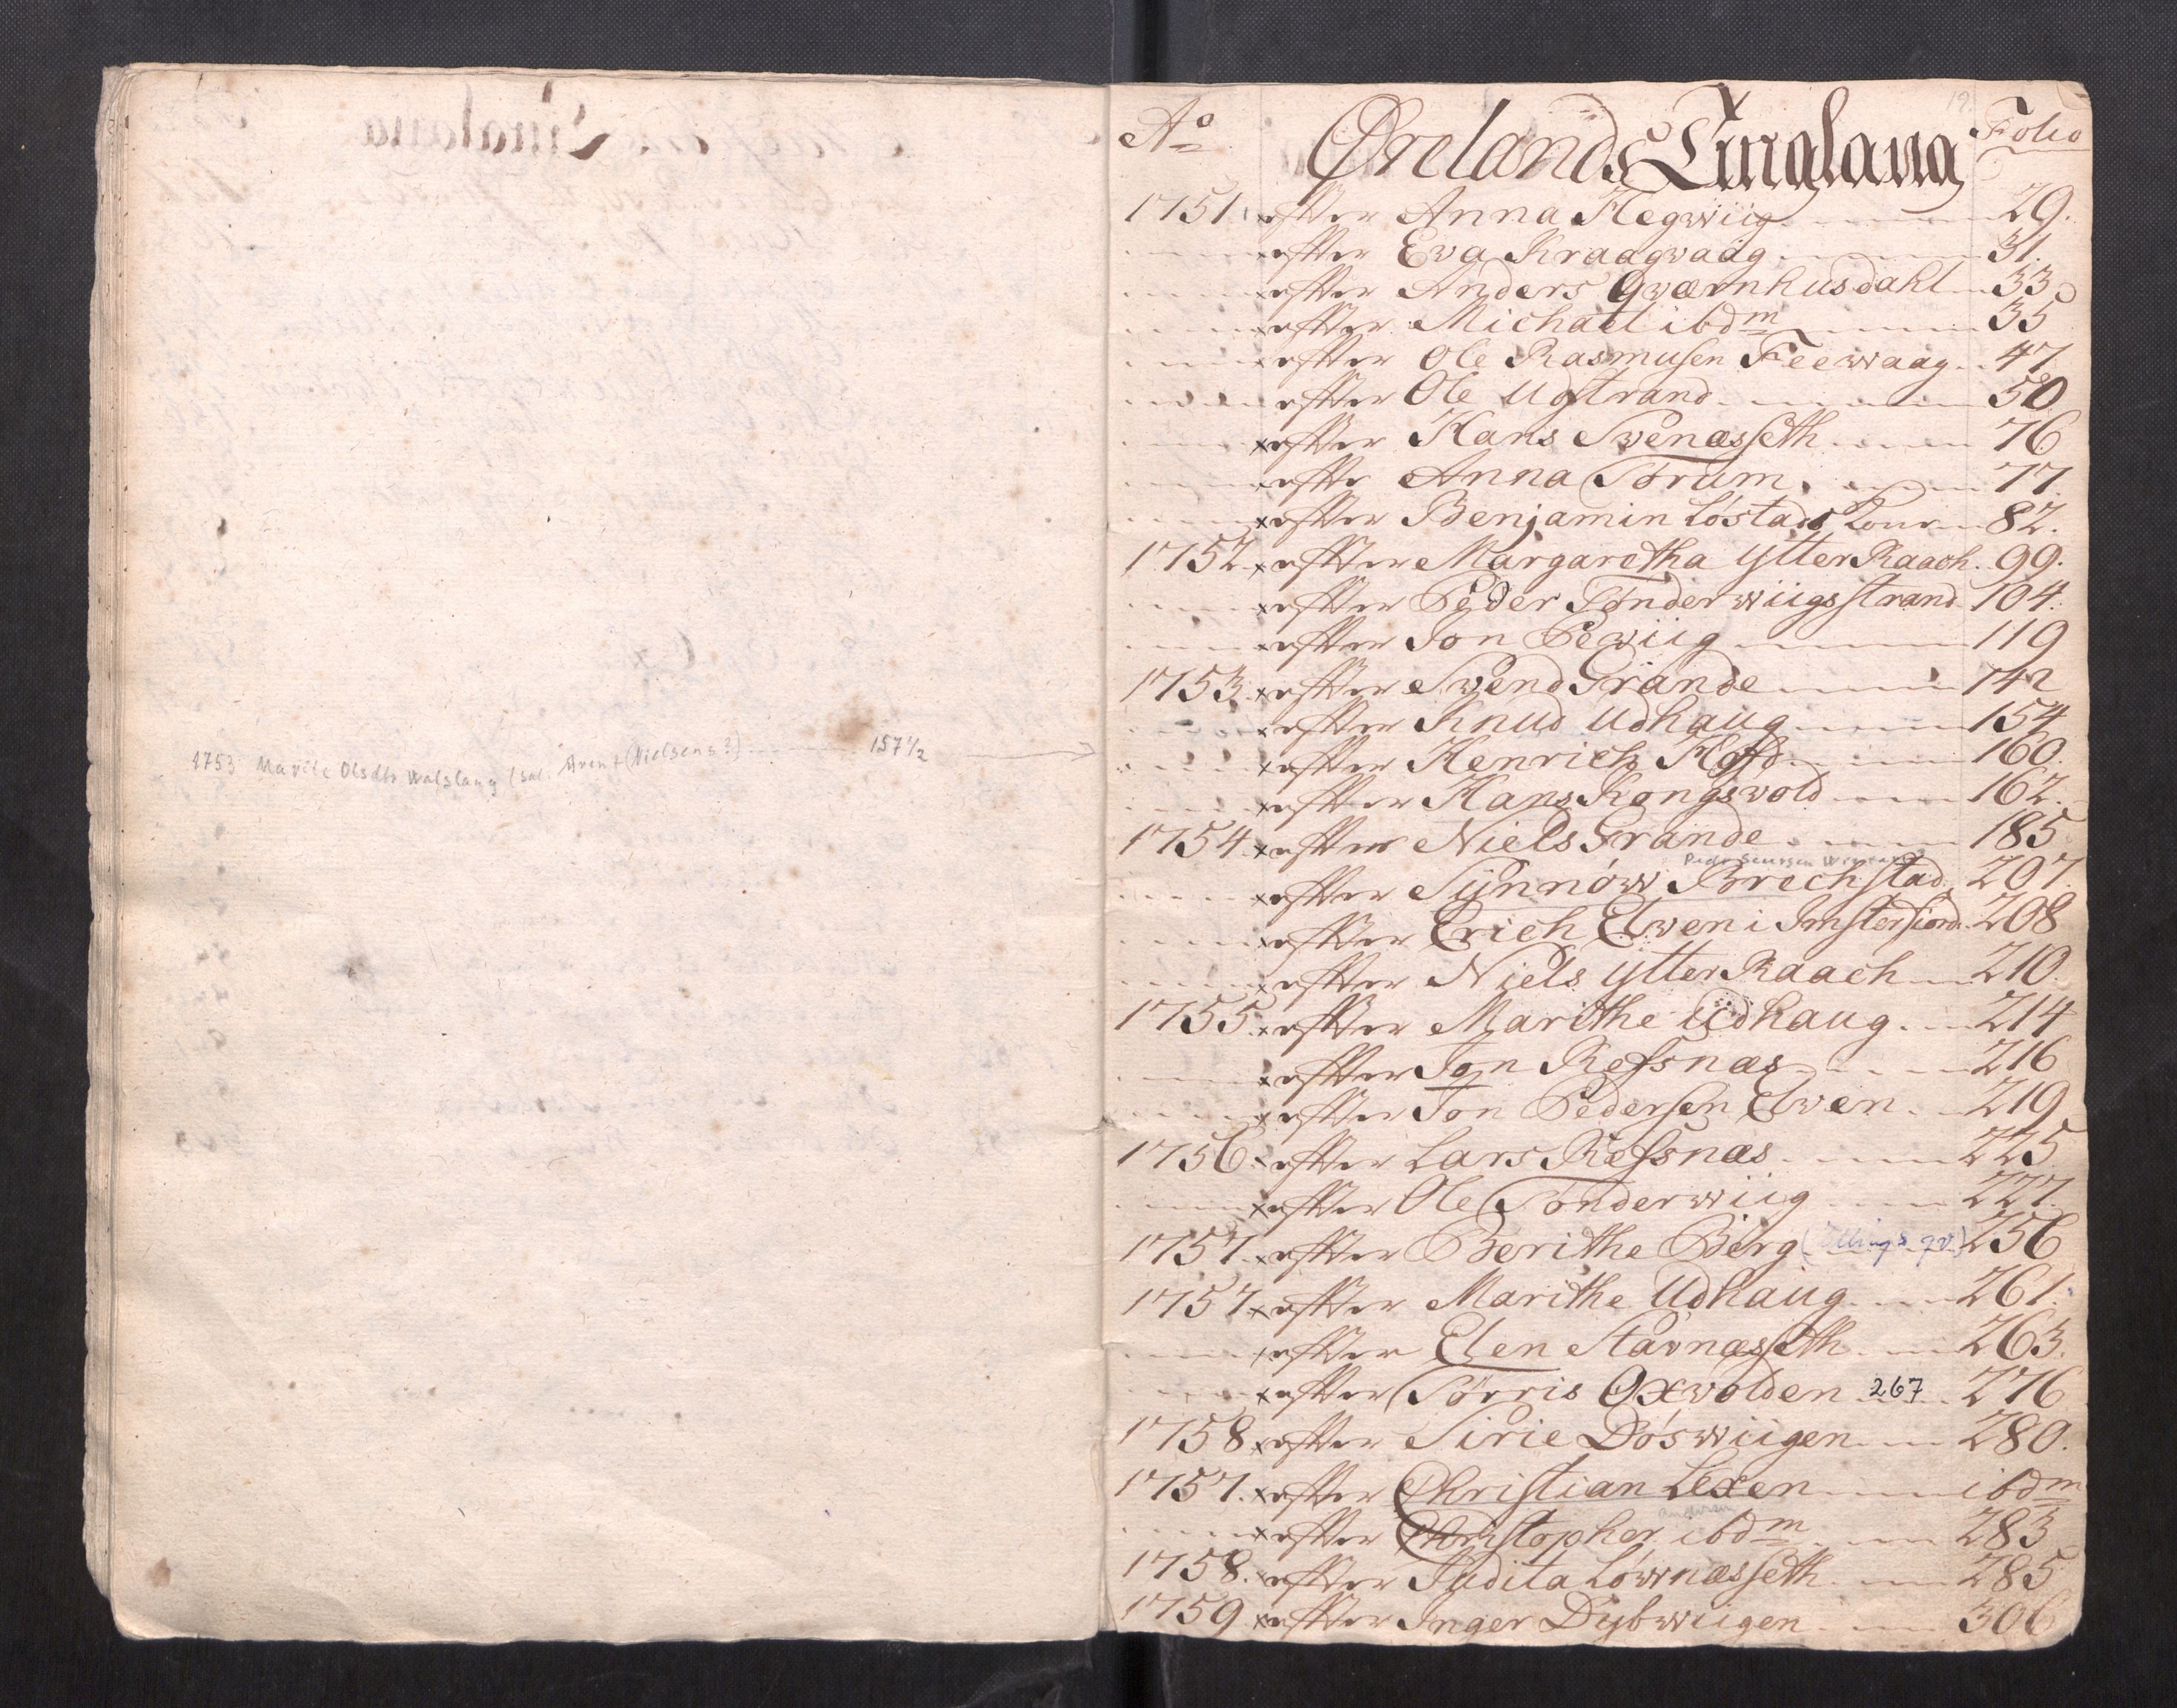 1753 Marite Olsdtr Walslaug (sal. Arent (Nielsens?) 157 1/2
19
Ao Ørelands Tinglaug Folio
1751 x effter Anna Hegwiig 29.
x effter Eva Kraagvaag 31.
x effter Anders Qværnhusdahl 33
x effter Michael ibdm 35
x effter Ole Rasmusen Feewaag 47
effter Ole Udstrand 50
x effter Hans Svenæsseth 76
x effter Anna Torum 77
x effter Benjamin Løstads 82.
1752 x effter Margaretha ytterRaach 99.
x effter Peder Sønderwiigsstrand 104.
x effter Jon Bewiig 119
1753 x effter Svend Grande 142
x effter Knud Udhaug 154
x effter Henrich Hoff 160.
x effter Hans Kongsvold 162.
1754 x effter Niels Grande 185
x effter Synnøw Brechstad 207.
x effter Erich Elwen i Imsterfiord 208
x effter Niels ytter Raach 210.
1755 x effter Marithe Udhaug 214
x effter Jon Refsnæs 216
x effter Jon Pedersen Elwen 219
1756 x effter Lars Refsnæs 225
x effter Ole Sønderwiig 227.
1757 effter Berithe Berg (Ellings qv.) 256
1757 x effter Marithe Udhaug 261.
x effter Elen Stavnæsseth 263.
x effter Torris Oxvolden 267 276
1758 x effter Sirie Døswiigen 280.
1757. x effter Christian Lexen ibdm
Andersen
x effter Christopher ibdm 283
1758. x effter Judita Løwnæsseth 285
1759 x effter Inger Dybwiigen 306